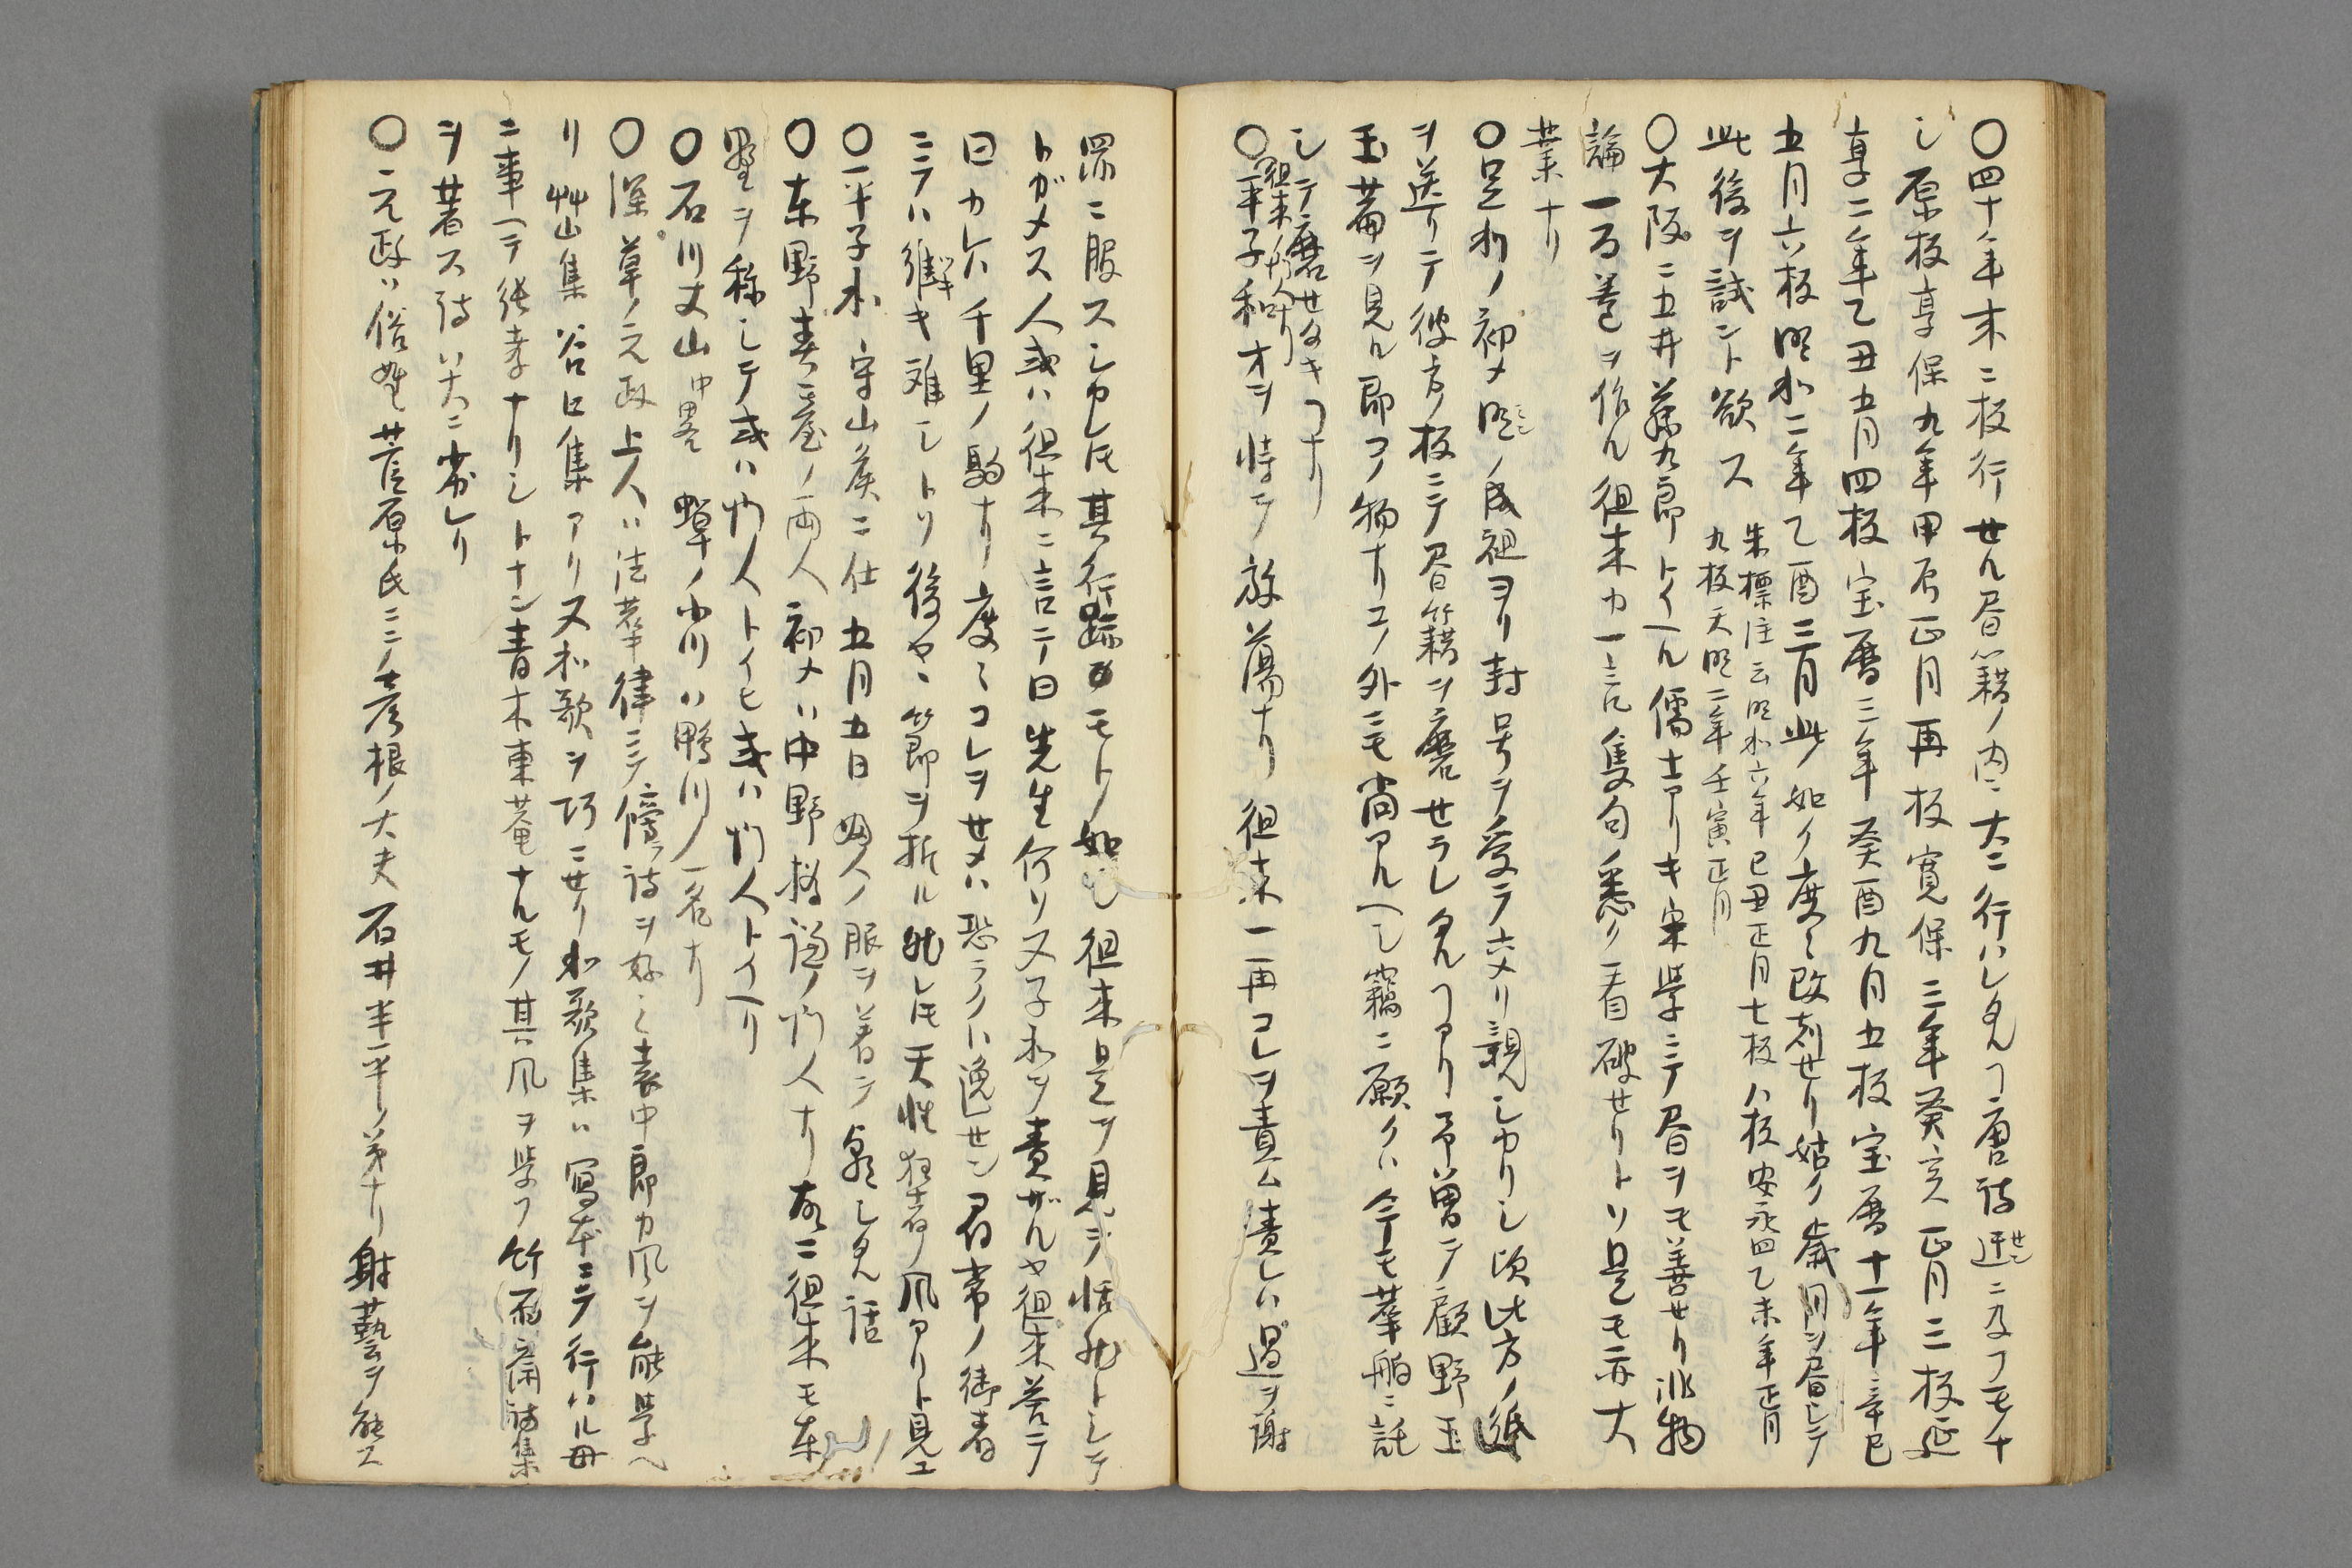 〇四十年来ニ板行セル書籍ノ内ニ大ニ行ハレタルヿ唐詩選ニ及フモノナ
シ原板享保九年甲辰正月再板寛保三年癸亥正月三板延
享二年乙丑五月四板宝暦三年癸酉九月五板宝暦十一年辛巳
五月六板明和二年乙酉三月此如ク度々改刻セリ姑ク歳月ヲ書シテ
此後ヲ試ント欲ス
朱標注云明和六年己丑正月七板八板安永四乙未年正月
九板天明二年壬寅正月
〇大阪ニ五井藤九郎トイヘル儒士アリキ宋学ニテ書ヲモ善セリ非物
論一方巻ヲ作ル徂来カ一言隻句悉ク看破セリトソ是モ亦大
業ナリ
〇足利ノ初メ明ノ成祖ヨリ封号ヲ受テ六メリ親シカリシ頃此方ノ紙
ヲ送リテ彼方ノ板ニテ書籍ヲ磨セラレタルヿアリ予曽テ顧野王
玉篇ヲ見ル即コノ物ナリコノ外ニモ尚アルヘシ竊ニ願クハ今モ華舶ニ託
シテ磨セタキヿナリ
〇平子和オヲ恃テ放蕩ナリ徂来一再コレヲ責ム責レハ過ヲ謝
罪ニ服スシカレ𪜈其行跡ハモトノ如シ徂来是ヲ見テ恬然トシテ
トガメス人或ハ徂来ニ言テ曰先生何ソ又子和ヲ責ザルヤ徂来答テ
曰カレハ千里ノ駒ナリ度々コレヲセメハ恐ラクハ逸セン君常ノ御者
ニテハ継キ難シトソ後ヤヽ節ヲ折ル然レ𪜈天性狂者ノ風アリト見エ
〇平子和守山矦ニ仕五月五日婦人ノ服ヲ着テ朝シタル話
〇東野春臺ノ両人初メハ中野撝謙ノ門人ナリ故ニ徂来モ東
野ヲ称シテ或ハ門人トイヒ或ハ門人トイヘリ
〇石川丈山中畧蝉ノ小川ハ鴨川ノ一名ナリ
〇深草ノ元政上人ハ法華律ニテ傍詩ヲ好ミ袁中郎カ風ヲ能学ヘ
リ艸山集谷口集アリ又和歌ヲ巧ニセリ和歌集ハ写本ニテ行ハル毋
ニ事ヘテ純孝ナリシトナン青木東菴ナルモノ其風ヲ学フ竹雨斎詩集
ヲ著ス詩ハ大ニ劣レリ
〇元政ハ俗姓菅原氏ニテ彦根ノ大夫石井半平ノ弟ナリ射藝ヲ能ス